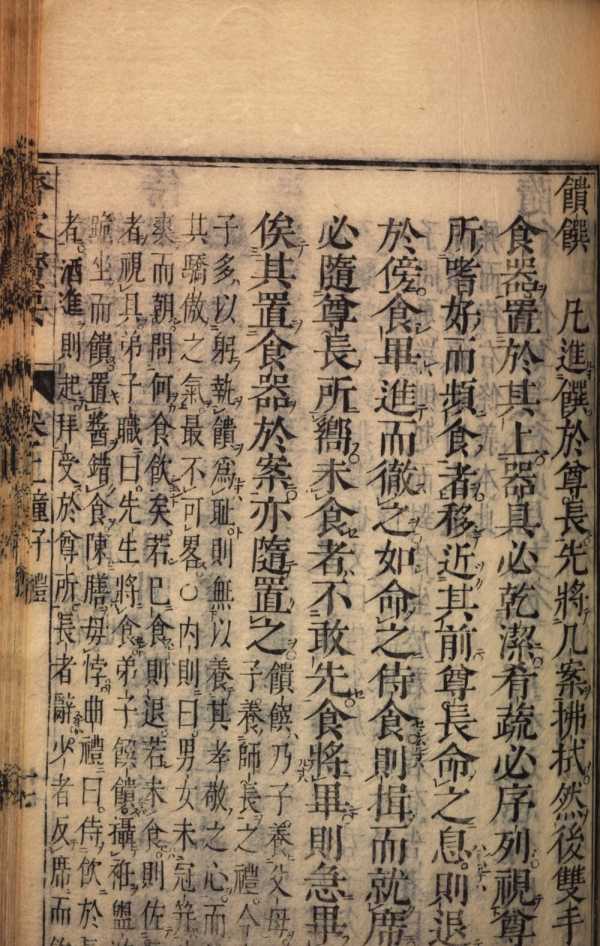 饋饌　凡進饌於尊長先將几案拂拭然後雙手
食器置於其上器具必乾潔肴蔬必序列視尊
所嗜好而頻食者移近其前尊長命之息則退
於傍食畢進而徹之如命之侍食則揖而就席
必隨尊長所嚮未食者不敢先食將畢則急畢
俟其置食器於案亦隨置之
饋饌乃子養父母
子養師長之禮今
子多以躬執饋為恥則無以養其孝敬之心而
其驕傲之氣最不可畧○內則曰男女未冠笄
爽而朝問何食飲矣若巳食則退若未食則佐
者視具弟子職曰先生將食弟子饌饋攝衽盥
跪坐而饋置醬錯食陳膳毋悖曲禮曰侍飲於
者酒進則起拜受於尊所長者辭少者反席而
卷之上童子禮